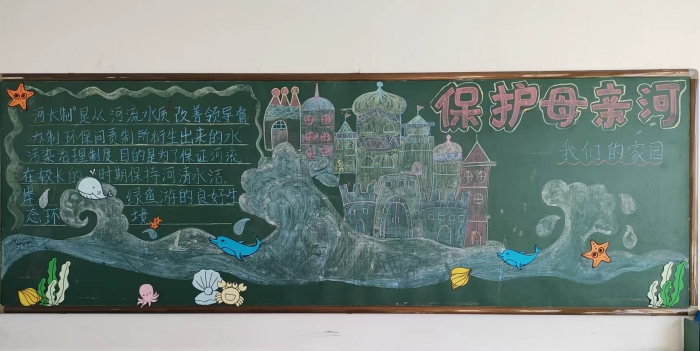 保护母亲河
我们的家园
"河长制"是从河流水质改善领导督
办制、环保问责制所衍生出来的水
污染治理制度,目的是为了保证河流
在较长的时期保持河清水洁、
岸 绿鱼游的良好生
态环 境